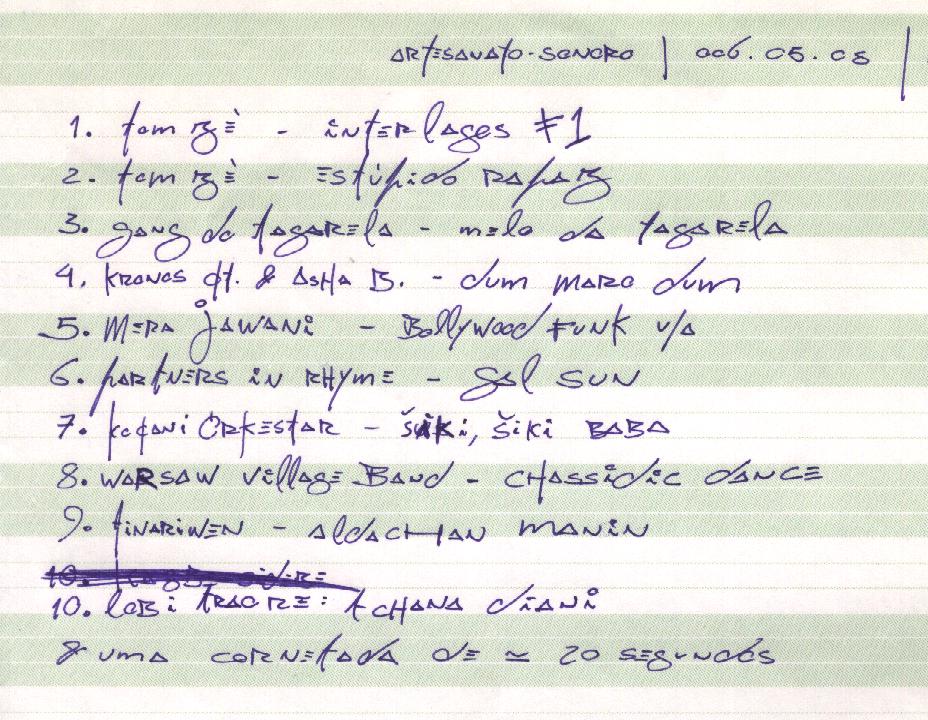 artesanato-sonoro | 006.05.08 |
1. tom zé - interlagos #1
2. tom zé - estúpido rapaz
3. gang do tagarela - melo da tagarela
4. kronos qt. & asha B. - dum maro dum
5. Mera jawani - Bollywood Funk v/a
6. partners in rhyme - gal sun
7. kočani orkestar - šiki, šiki baba
8. warsaw village Band - chassidic dance
9. tinariwen - aldachan manin
10. lobi traore: tchana diani
& uma cornetada de ≃ 20 segundos